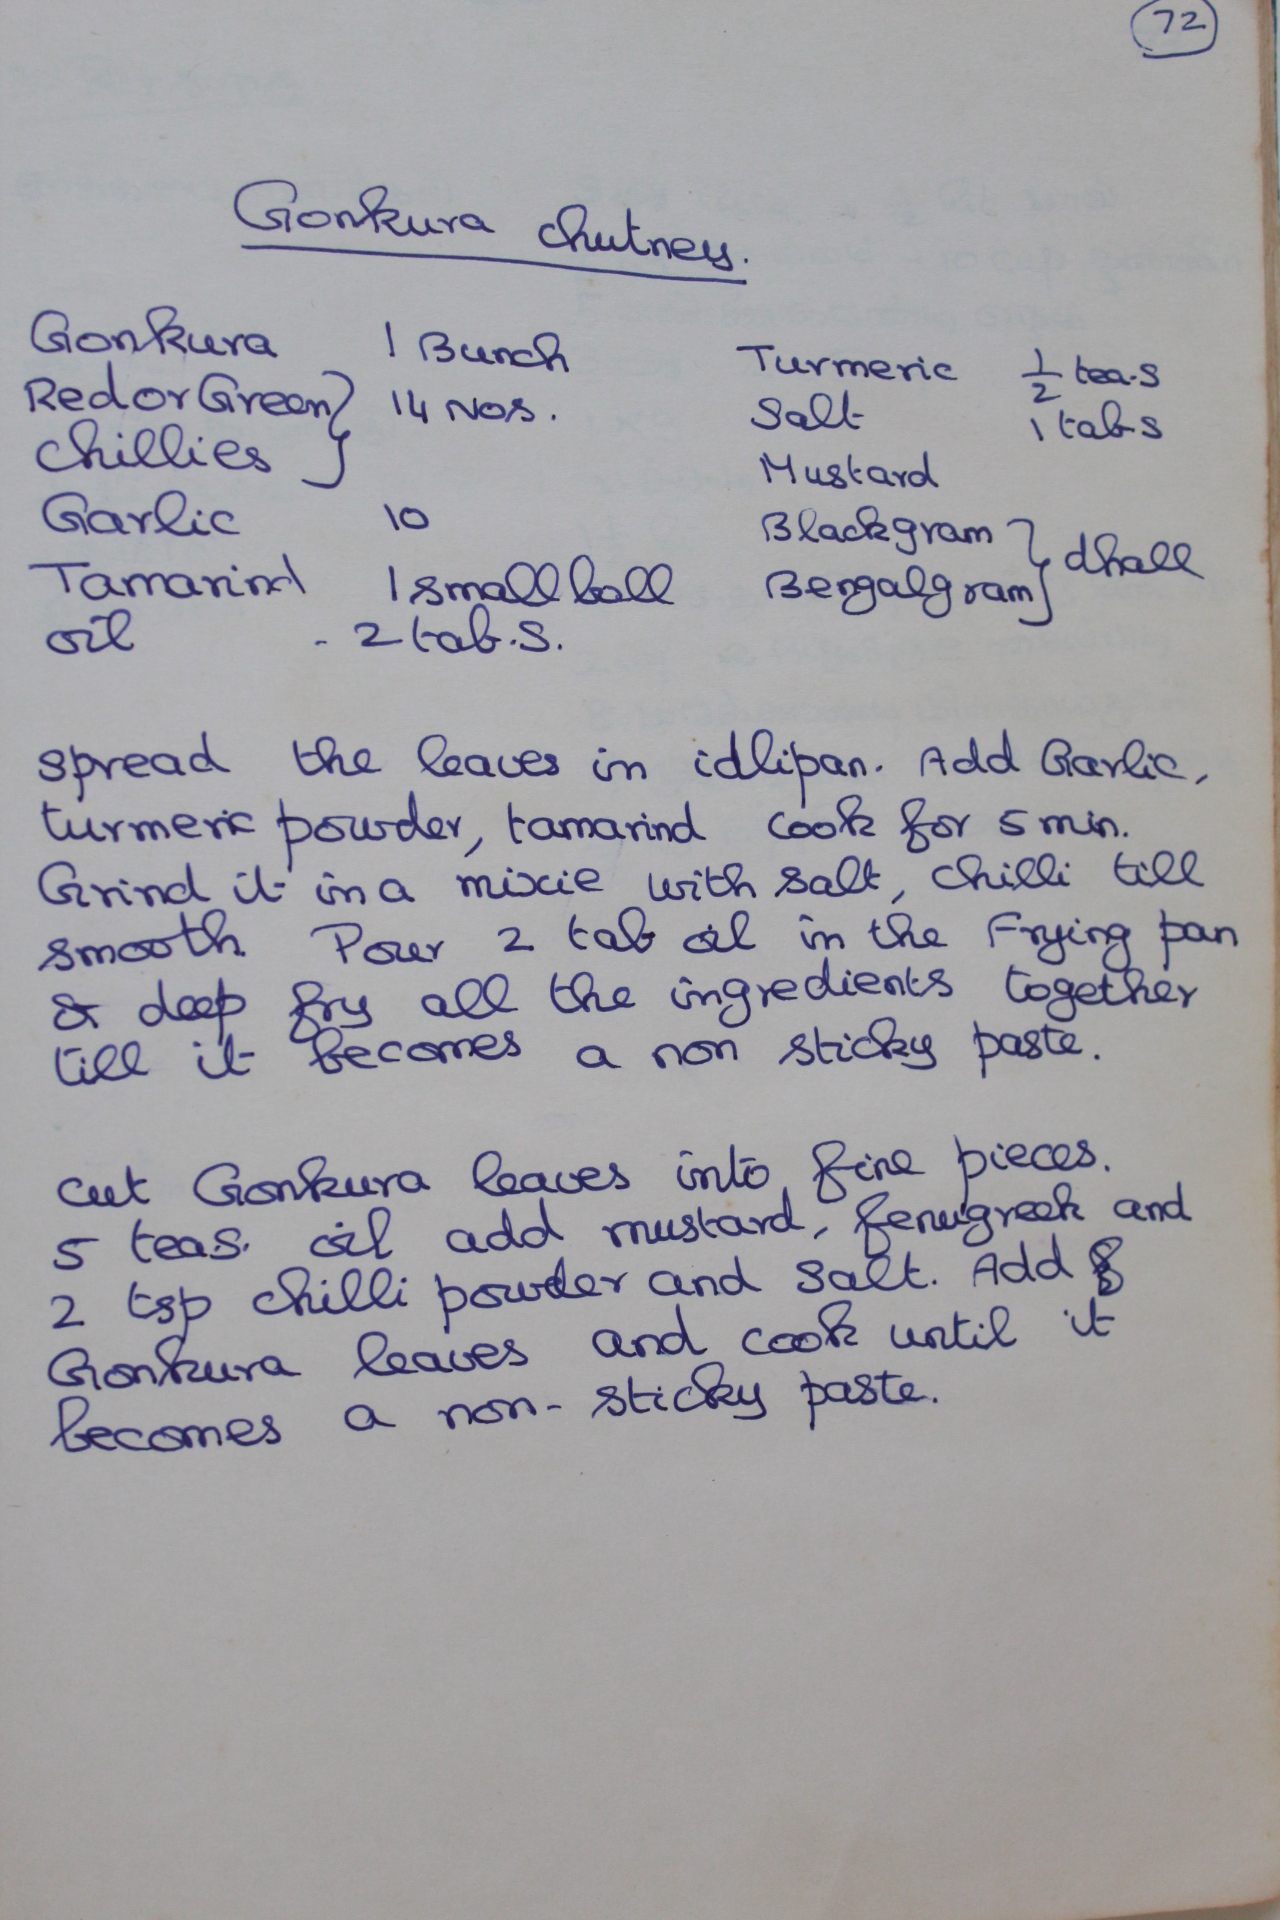 72
Gonkura chutney.
Gonkura 1 Bunch Turmeric 1/2 tea.s
Red or Green } 14 Nos. Salt 1 tab.s
chillies Mustard
Garlic 10 Blackgram } dhall
Tamarind 1 small ball Bengalgram
oil - 2 tab.s.
spread the leaves in idlipan. Add Garlic,
turmeric powder, tamarind cook for 5 min.
Grind it in a mixie with salt, chilli till
smooth. Pour 2 tab oil in the Frying pan
& deep fry all the ingredients together
till it becomes a non sticky paste.
cut Gonkura leaves into fine pieces.
5 teas. oil add mustard, fenugreek and
2 tsp chilli powder and salt. Add
Gonkura leaves and cook until it
becomes a non-sticky paste.